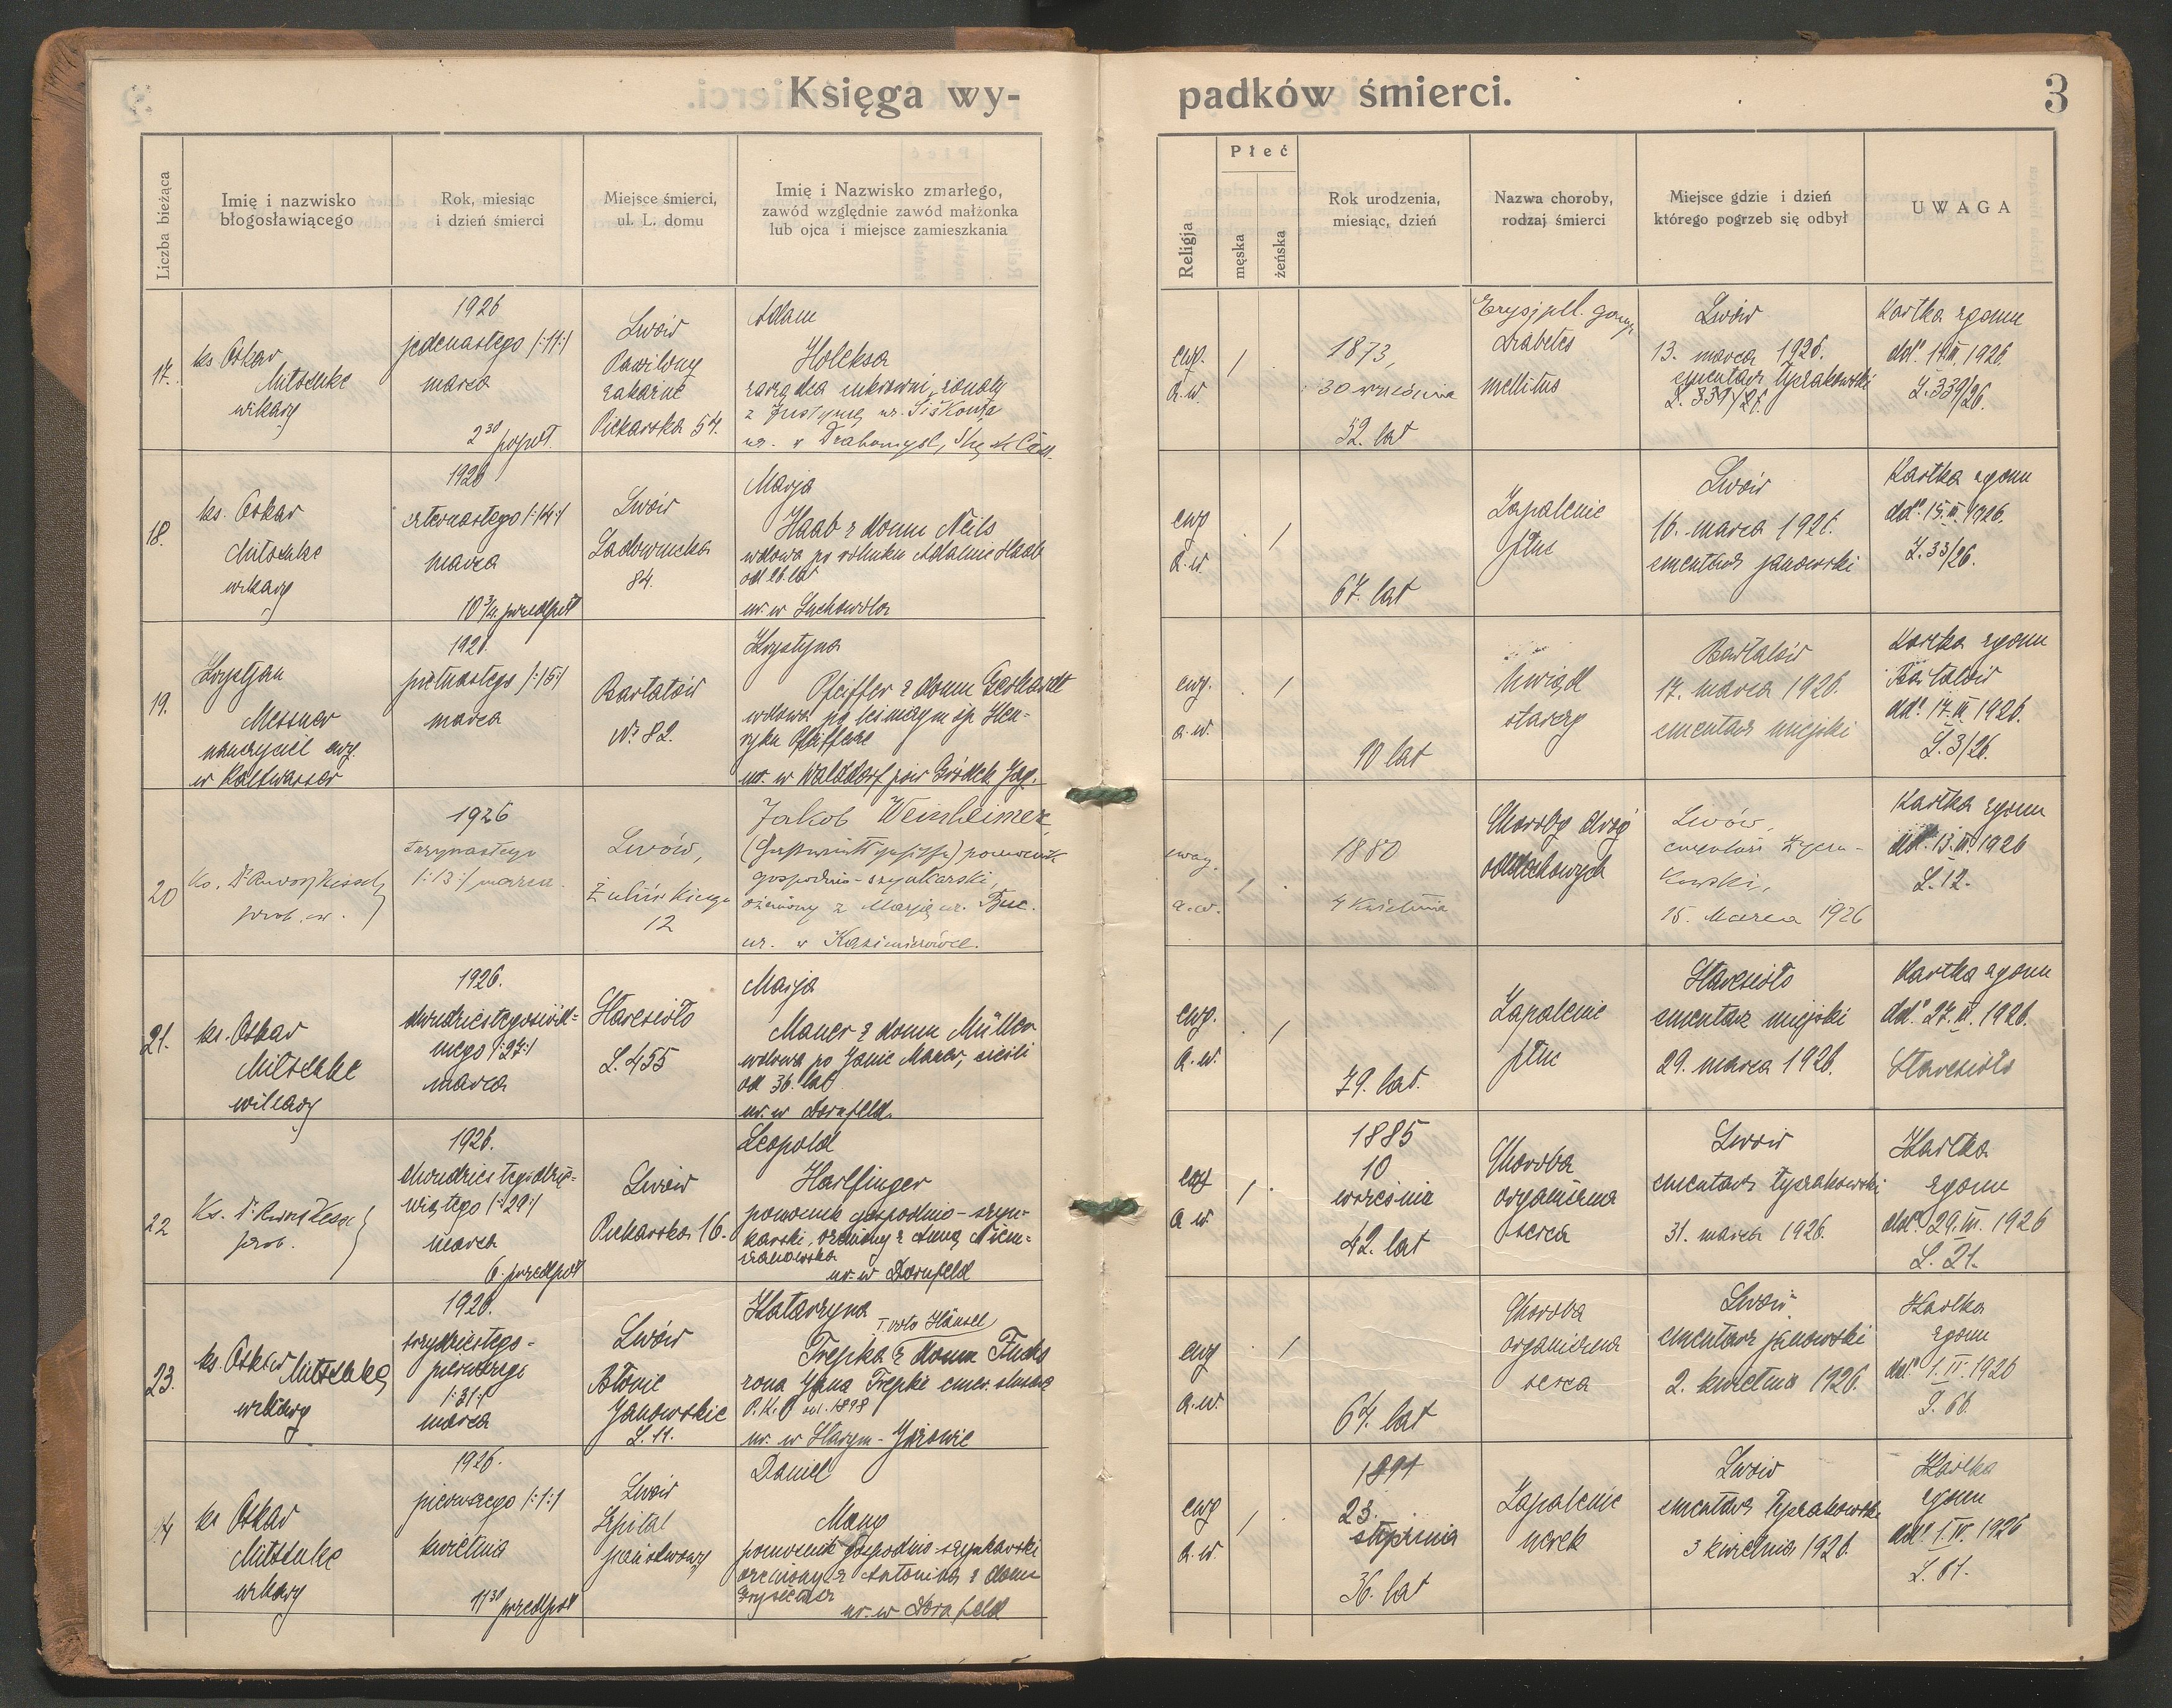 Księga wy-
padków śmierci.
3
Liczba bieżąca
Imię i nazwisko
błogosławiącego
Rok, miesiąc
i dzień śmierci
Miejsce śmierci,
ul. L. domu
Imię i Nazwisko zmarłego,
zawód względnie zawód małżonka
lub ojca i miejsce zamieszkania
Religja
Płeć
męska
żeńska
Rok urodzenia,
miesiąc, dzień
Nazwa choroby,
rodzaj śmierci
Miejsce gdzie i dzień
którego pogrzeb się odbył
UWAGA
17.
ks Oskar
Mitschke
wikary
1926
jedenastego /:11:/
marca
2³⁰ popoł.
Lwów
Pawilony
zakaźne
Piekarska 54.
Adam
Holeksa
zarządca cukrowni, żonaty
z Justyną ur.
ur. w Drahomyśl,
ewg.
a.w.
/
1873,
30 września
52. lat
Diabetes
mellitus
Lwów
13. marca 1926.
cmentarz łyczakowski
L. 339/26.
Kartka zgonu
L. 339/26.
18.
ks. Oskar
Mitschke
wikary
1926
czternastego /:14:/
marca
10¾ przedpoł
Lwów
84.
Marja
Haab z domu Neils
wdowa po rolniku Adamie Haab
od 26 lat
ur. w
ewg
a.w.
/
67. lat
Zapalenie
płuc
Lwów
16. marca 1926.
cmentarz janowski
Kartka zgonu
dd. 15.III.1926.
L. 33/26.
19.
Krystjan
Messner
nauczyciel ewg.
w Kaltwasser
1926.
piętnastego /:15:/
marca
Bartatów
№ 82.
Krystyna
Pfeiffer z domu Gerhardt
wdowa po leśniczym śp. Hen-
ryku Pfeifferze
ur. w Walddorf pow Gródek Jag.
ewg.
a.w.
/
90 lat
Uwiąd
starczy
Bartatów
17. marca 1926.
cmentarz miejski
Kartka zgonu
Bartatów
dd. 17.III.1926.
L. 3/26.
20
Ks. Dr Kessel
prob. ew.
1926
trzynastego
/:13:/ marca.
Lwów,
Żulińskiego
12
Jakob Weinheimer,
gospodnio-szynkarski,
ożeniony z Marją ur.
ur. w Kazimirówce.
ewag.
a.w.
/
1880
4 kwietnia
Choroby dróg
oddechowych
Lwów,
cmentarz Łycza-
kowski,
15. Marca 1926
Kartka zgonu
dd. 13.III.1926
L. 12.
21.
ks. Oskar
Mitschke
wikary
1926.
dwudziestegosiód-
mego /:27:/
marca
Staresioło
L. 455
Marja
Mauer z domu Müller
wdowa po Janie Mauer, cieśli
od 36. lat
ur. w Dornfeld.
ewg.
a.w.
/
79. lat.
Zapalenie
płuc
Staresioło
cmentarz miejski
29. marca 1926.
Kartka zgonu
dd. 27.III.1926.
Staresioło
22
Ks. Dr Kessel
prob.
1926.
dwudziestegodzie-
wiątego /:29:/
marca
6. przedpoł
Lwów
Piekarska 16.
Leopold
Harlfinger
pomocnik gospodnio-szyn-
karski, ożeniony z Anną
ur. w Dornfeld
ewg
a.w.
/
1885
10
września
42. lat
Choroba
organiczna
serca
Lwów
cmentarz łyczakowski
31. marca 1926.
Kartka
zgonu
dd. 29.III.1926
L. 21.
23.
ks. Oskar Mitschke
wikary
1926.
trzydziestego-
pierwszego
/:31:/
marca
Lwów
Błonie
Janowskie
L. 11.
Katarzyna
Trepka z domu Fuchs
żona Jana Trepki
ur. w Starym-Jażowie
ewg
a.w.
/
67. lat
Choroba
organiczna
serca
Lwów
cmentarz janowski
2. kwietnia 1926.
Kartka
zgonu
dd. 1.IV.1926
L. 66.
ks Oskar
Mitschke
wikary
1926.
pierwszego /:1:/
kwietnia
11³⁰ przedpoł
Lwów
Szpital
państwowy
Daniel
Mang
pomocnik gospodnio-szynkarski
ożeniony z Antoniną z domu
ur. w Dornfeld
ewg
a.w.
/
23.
stycznia
36. lat
Zapalenie
nerek
Lwów
cmentarz łyczakowski
3 kwietnia 1926.
Kartka
zgonu
dd. 1.IV.1926
L. 61.